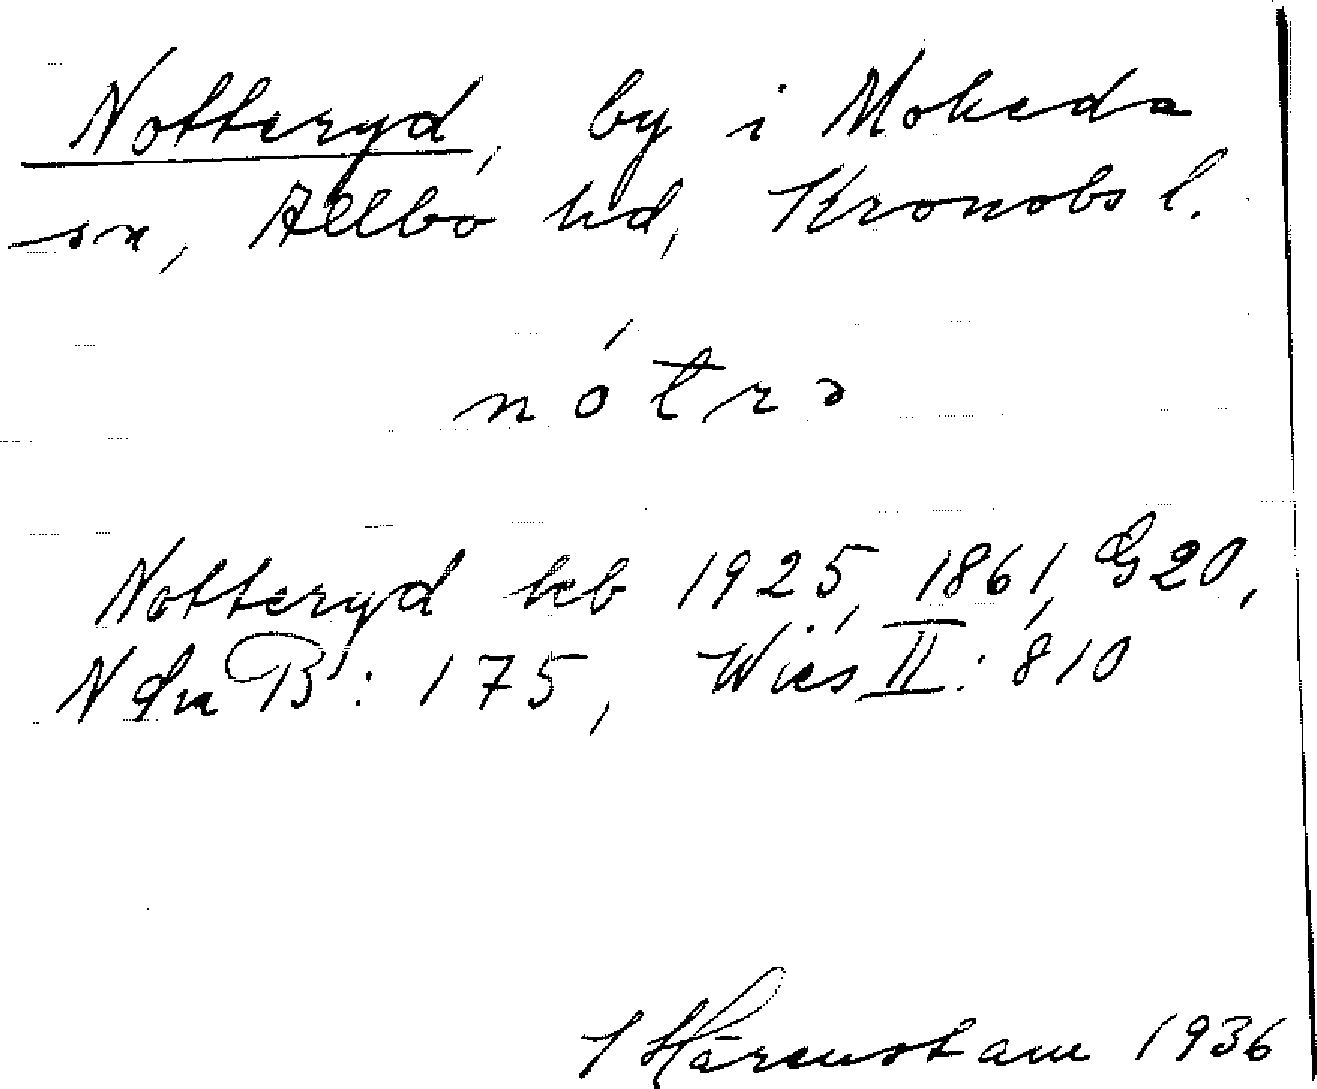 Notteryd, by i Moheda
sn, Allbo hd, Kronobs l.
nótrə
Notteryd kb 1925, 1861, G20,
NdnB: 175, Wies II: 810
Härenstam 1936